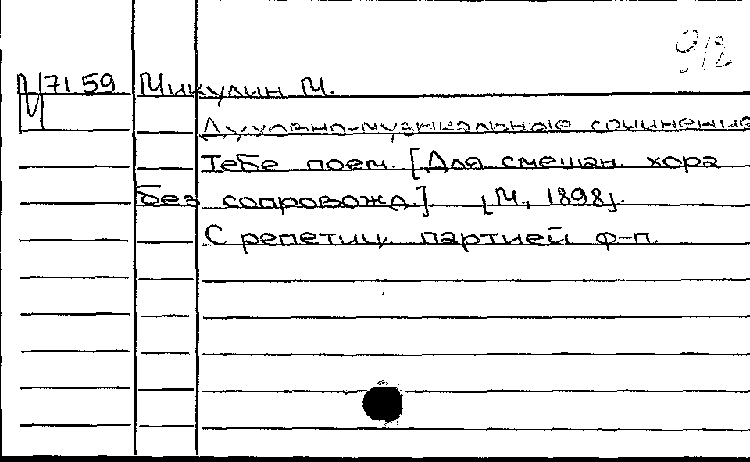 9/2
71 59 Микулин М.
Духовно-музыкальные сочинения
Тебе поем. [Для смешан. хора
без сопровожд.] [М, 1898].
С репетиц. партией ф-п.